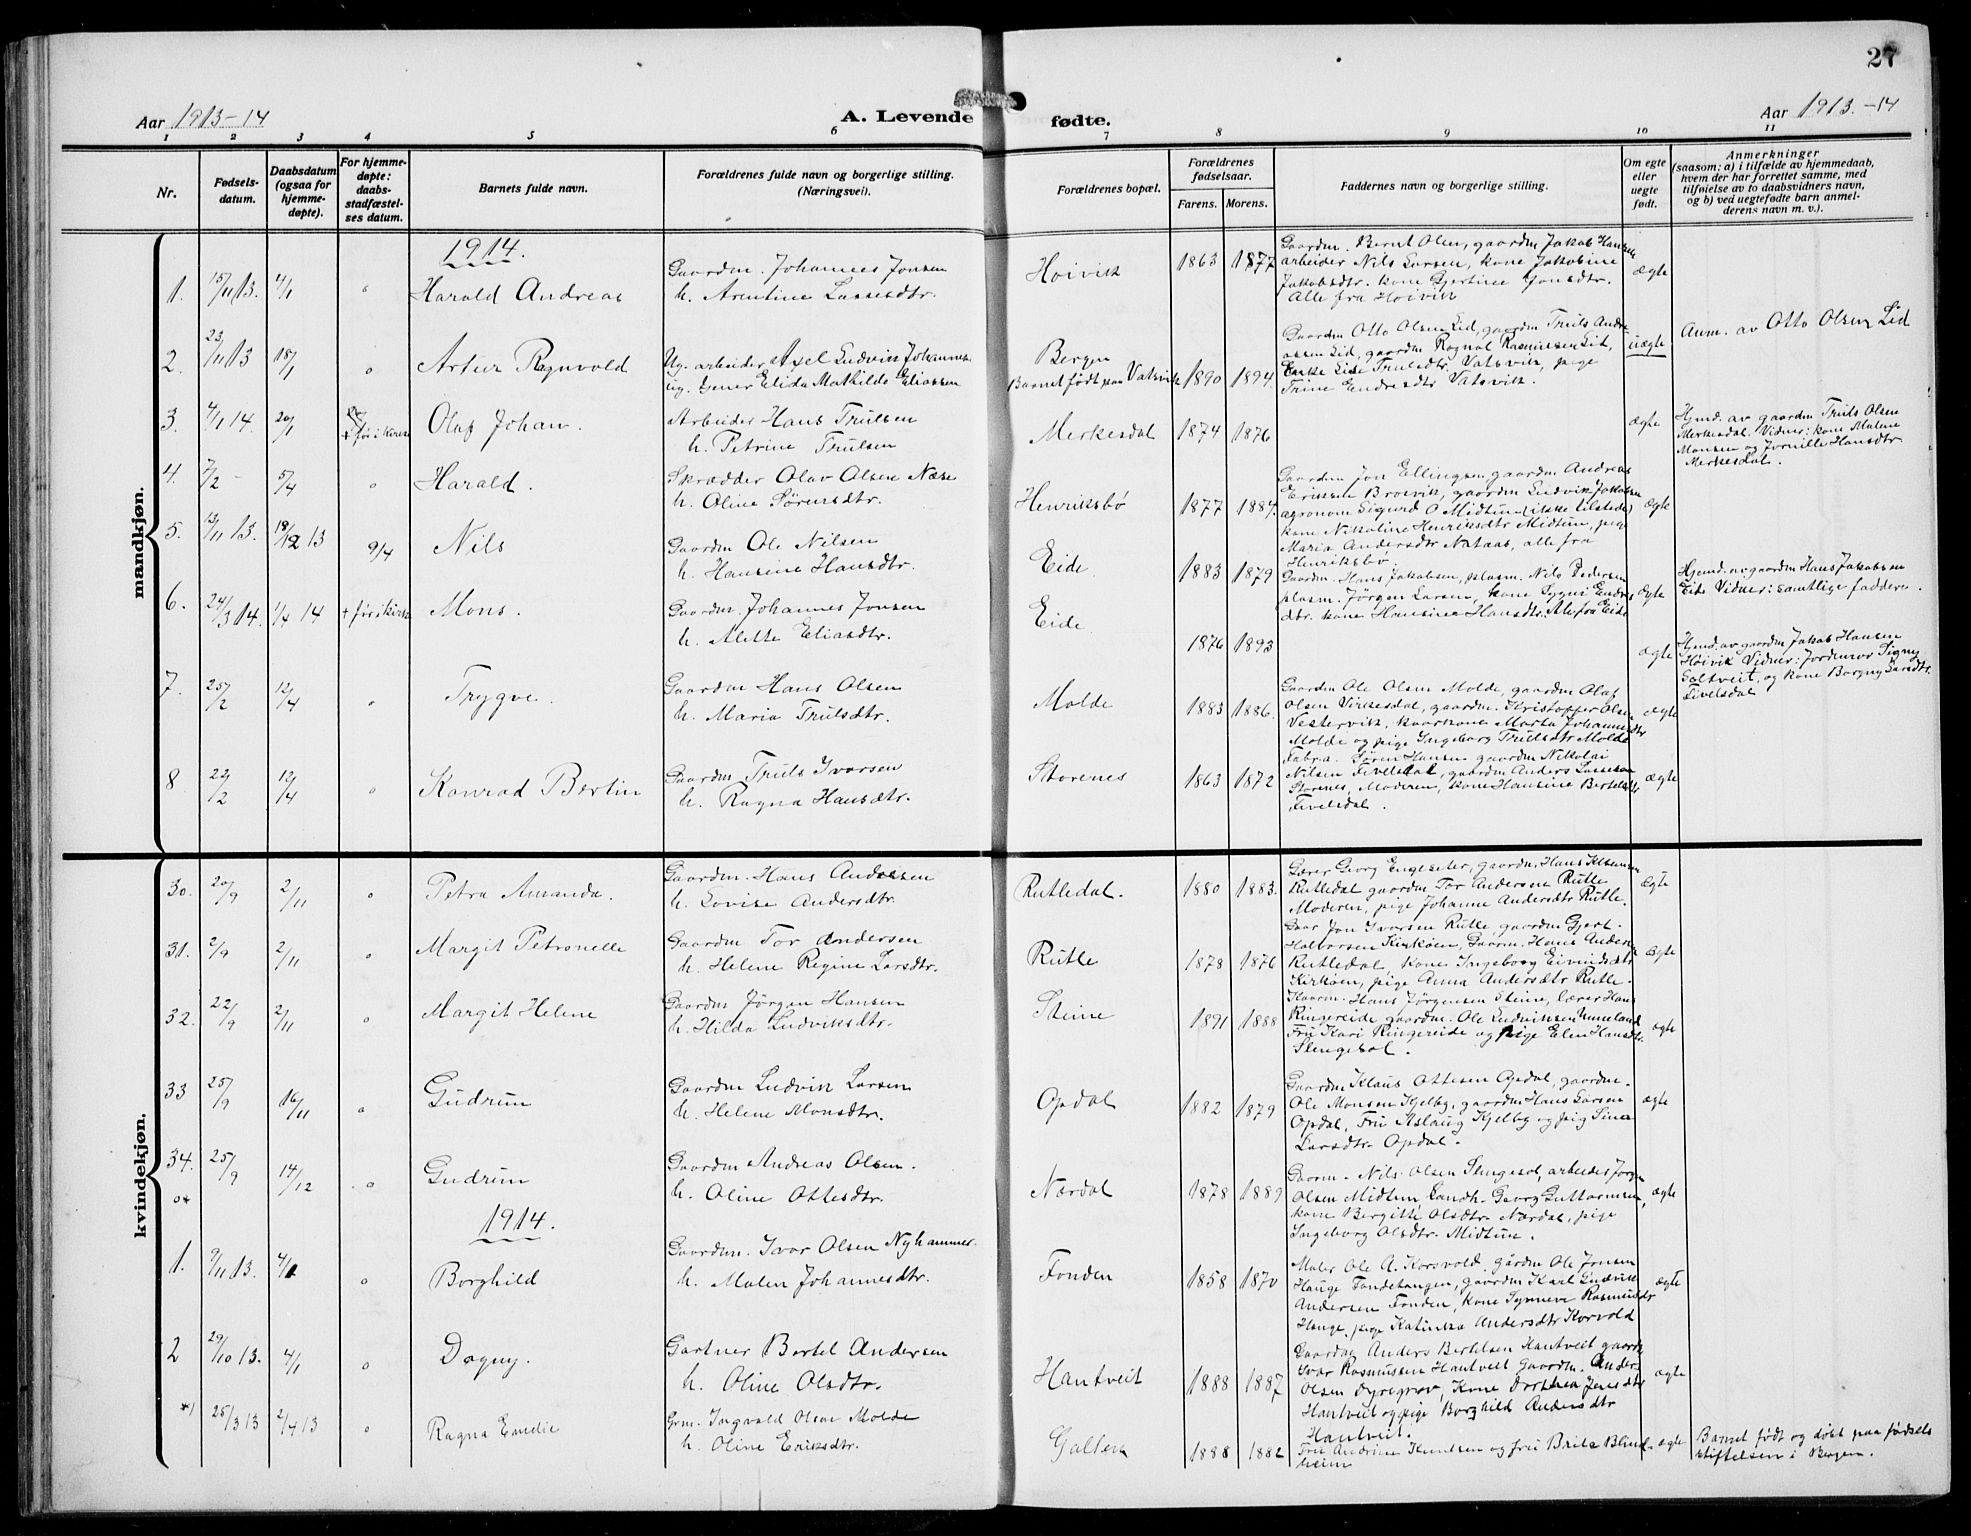 27
Aar 1913-14
A. Levende
fødte.
Aar 1913.-14
1 2 3 4 5 6 7 8 9 10 11
Nr.
Fødsels-
datum.
Daabsdatum
(ogsaa for
hjemme-
døpte).
For hjemme-
døpte:
daabs-
stadfæstel-
ses datum.
Barnets fulde navn.
Forældrenes fulde navn og borgerlige stilling.
(Næringsvei).
Forældrenes bopæl.
Forældrenes
fødselsaar.
Farens. Morens.
Faddernes navn og borgerlige stilling.
Om egte
eller
uegte
født.
Anmerkninger
(saasom: a) i tilfælde av hjemmedaab,
hvem der har forrettet samme, med
tilføielse av to daabsvidners navn,
og b) ved uegtefødte barn anmel-
derens navn m. v.).
mandkjøn.
1914.
1. 15/11 13. 4/1 " Harald Andreas
Gaardm. Johannes Jonsen
h. Arentine Lassesdtr.
Høivik 1863 1877
Gaardm. Bernt Olsen, gaardm Jakob Hansen
arbeider Nils Larsen, kone Jakobine
Jakobsdtr. kone Gjertine Jonsdtr.
Alle fra Høivik
ægte
2. 23/11 13 18/1 " Artur Ragnvald
Ug. arbeider Axel Ludvik Johannes.
ug. Elida Mathilde Eliassen
Bergen
Barnet født paa Vatsvik 1890 1894.
Gaardm Otto Olsen Lid, gaardm Truls Andre
assen Lid, gaardm Ragnal Rasmussen Lid,
Enke Lise Trulsdtr. Vatsvik, pige
Trine Endresdtr Vatsvik.
uægte
Anm. av Otto Olsen Lid
3. 4/1 14. 20/1 + før i kirken Olaf Johan.
Arbeider Hans Trulsen
h. Petrine Trulsen
Merkesdal 1874 1876
ægte
Hjmd. av gaardm Truls Olsen
Merkesdal. Vidner: kone Malene
Monsen og Jornille Hansdtr
Merkesdal.
4. 7/2 - 5/4 " Harald.
Skrædder Olav Olsen Næse
h. Oline Sørensdtr.
Henriksbø 1877 1884.
Gaardm Jon Ellingsen, gaardm Andreas
Eriksen Brosvik, gaardm Ludvik Jakobsen
agronom Sigurd O Midtun (ikke tilstede)
kone Nikoline Henriksdtr Midtun, pige
Maria Andersdtr Nataas, alle fra
Henriksbø
ægte
5. 13/11 13. 18/12 13 9/4 Nils
Gaardm Ole Nilsen
h. Hansine Hansdtr.
Eide 1883 1879
Gaardm. Hans Jakobsen, plasm. Nils Pedersen
plasm. Jørgen Larsen, kone Sygni Endres
dtr. kone Hansine Hansdtr. Alle fra Eide
ægte
Hjemd. av gaardm Hans Jakobsen
Eide Vidner: samtlige faddere.
6. 24/3 14. 1/4 14 + før i kirke Mons.
Gaardm. Johannes Jonsen
h. Alette Eliasdtr.
Eide 1876 1893
ægte
Hjemd. av gaardm Jakob Hansen
Høivik Vidner: Jordemor Signy
Soltveit. og kone Borgny Larsdtr.
Tivelsdal
7. 25/2 12/4 " Trygve.
Gaardm Hans Olsen
h. Maria Trulsdtr.
Molde 1883 1886.
Gaardm Ole Olsen Molde, gaardm Olaf
Olsen Virkesdal, gaardm. Kristoffer Olsen
Vestervik, kaarkone Marta Johannesdtr
Molde og pige Ingeborg Trulsdtr Molde
ægte
8 22/2 12/4 " Konrad Bertin
Gaardm Truls Ivarsen
h. Ragna Hansdtr.
Storenes 1863 1872
Fabra. Søren Hansen gaardm Nikolai
Nilsen Fivelsdal, gaardm Anders Lassesen
Storenes, Moderen, kone Hansine Bertelsdtr
Fivelsdal.
ægte
kvindekjøn.
30. 20/9 2/11 " Petra Amanda.
Gaardm. Hans Andersen
h. Lovise Andersdtr.
Rutledal. 1880 1883.
Lærer Georg Engeseter, gaardm. Hans Klausen
Rutledal gaardm Tor Andersen Rutle
Moderen, pige Johanne Andersdtr Rutle.
ægte
31. 2/9 2/11 " Margit Petronelle
Gaardm Tor Andersen
h. Helene Regine Larsdtr.
Rutle 1878 1876
Gaar Jon Ivarsen Rutle, gaardm Gjert
Halvorsen Kirkøen, Gaarm. Hans Andersen
Rutledal, kone Ingeborg Eivindsdtr
Kirkøen, pige Anna Andersdtr Rutle.
ægte
32. 22/9 2/11 " Margit Helene
Gaardm Jørgen Hansen
h. Hilda Ludviksdtr.
Steine 1891 1888
Kaarm. Hans Jørgensen Steine, lærer Hans
Ringereide gaardm. Ole Ludviksen Nuneland
Fru Kari Ringereide og pige Elen Hansdtr.
Slengesol.
ægte
33 25/9 16/11 " Gudrun
Gaardm Ludvik Larsen
h. Helene Monsdtr.
Opdal 1882 1879
Gaardm Klaus Ottesen Opdal, gaardm.
Ole Monsen Kjelby, gaardm Hans Larsen
Opdal, Fru Aslaug Kjelby og pig Sina
Larsdtr. Opdal.
ægte
34. 25/9 14/12 " Gudrun
o*
Gaardm Andreas Olsen.
h. Oline Ottesdtr.
Nærdal 1878 1889
Gaarm. Nils Olsen Slengesol, arbeider Jørgen
Olsen Midtun Landh. Georg Guttormsen,
kone Bergitte Olsdtr. Nærdal, pige
Ingeborg Olsdtr. Midtun.
ægte
1914.
1. 9/11 13. 4/1 " Borghild
Gaardm. Ivar Olsen Nyhammer.
h. Malen Johannesdtr.
Fonden 1858 1870
Maler Ole A. Korsvold, gårdm Ole Jonsen
Hauge Fondetangen, gaardm Karl Ludvik
Andersen Fonden, kone Synneve Rasmusdtr
Hauge, pige Katinka Andersdtr Korvold
ægte
2 29/10 13. 4/1 " Dagny.
Gartner Bertel Andersen
h. Oline Olsdtr.
Hantveit 1888 1887
Gaardm Anders Bertelsen Hantveit gaardm
Ivar Rasmussen Hantveit Gaardm. Anders
Olsen Dyregrov, Kone Dorthea Jensdtr
Hantveit og pige Borghild Andersdtr
Hantveit.
ægte
*) 25/3 13 2/4 13 " Ragna Emelie
Grm. Ingvald Olsen Molde
h. Oline Eriksdtr.
Galten 1888 1882
Fru Andrine Knutsen og fru Brite Blind-
heim
ægte
Barnet født og døbt paa fødsels
stiftelsen i Bergen.